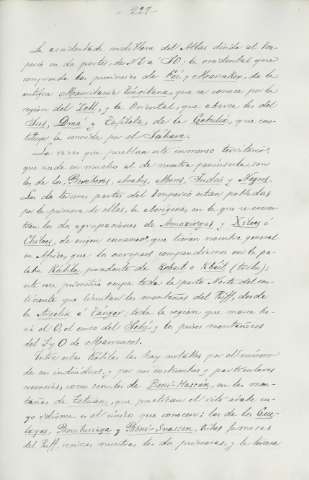 - 227 -
La accidentada cordillera del Atlas divide el Im-
perio en dos partes, de N.E. a S.O.: la occidental que
comprende las provincias de Fez y Marruecos, de la
antigua Mauritania Tingitana, que se conoce por la
región del Tell, y la Oriental, que abarca las del
Sus, Draa y Tafilete, de la Getulia, que cons-
tituyen la conocida por el Sahara.
La razas que pueblan este inmenso territorio,
que mide un medio al de nuestra península son
las de los Bereberes, Arabes, Moros, Judíos y Negros.
Las de tercera partes del Imperio están pobladas
por la primera de ellas, la aborígena, en la que se encuen-
tran las de agrupaciones de Amazirgas y Xiloes ó
Chelves, de origen, que llevan nombre general
en Africa, que los europeos comprendieron en la pa-
labra Kabila, procedente de Kebail o Kbail (tribu);
esta raza primitiva ocupa toda la parte Norte del con-
tinente que limitan las montañas del Riff, desde
la Argelia á Tanger, toda la región que mira ha-
cia el O, el curso del Sebú y los países montañosos
del S y O de Marruecos.
Entre estas Kabilas las hay notables por el número
de sus individuos, y por sus costumbres y particulares
creencias, como son las de Beni-Hassan, en las mon-
tañas de Tetuan, que practican el
el único que conocen; las de los Gue-
layas, Benibuiraga y Beni-Snassen, tribus famosas
del Riff, vecinas nuestras las dos primeras, y la tercera